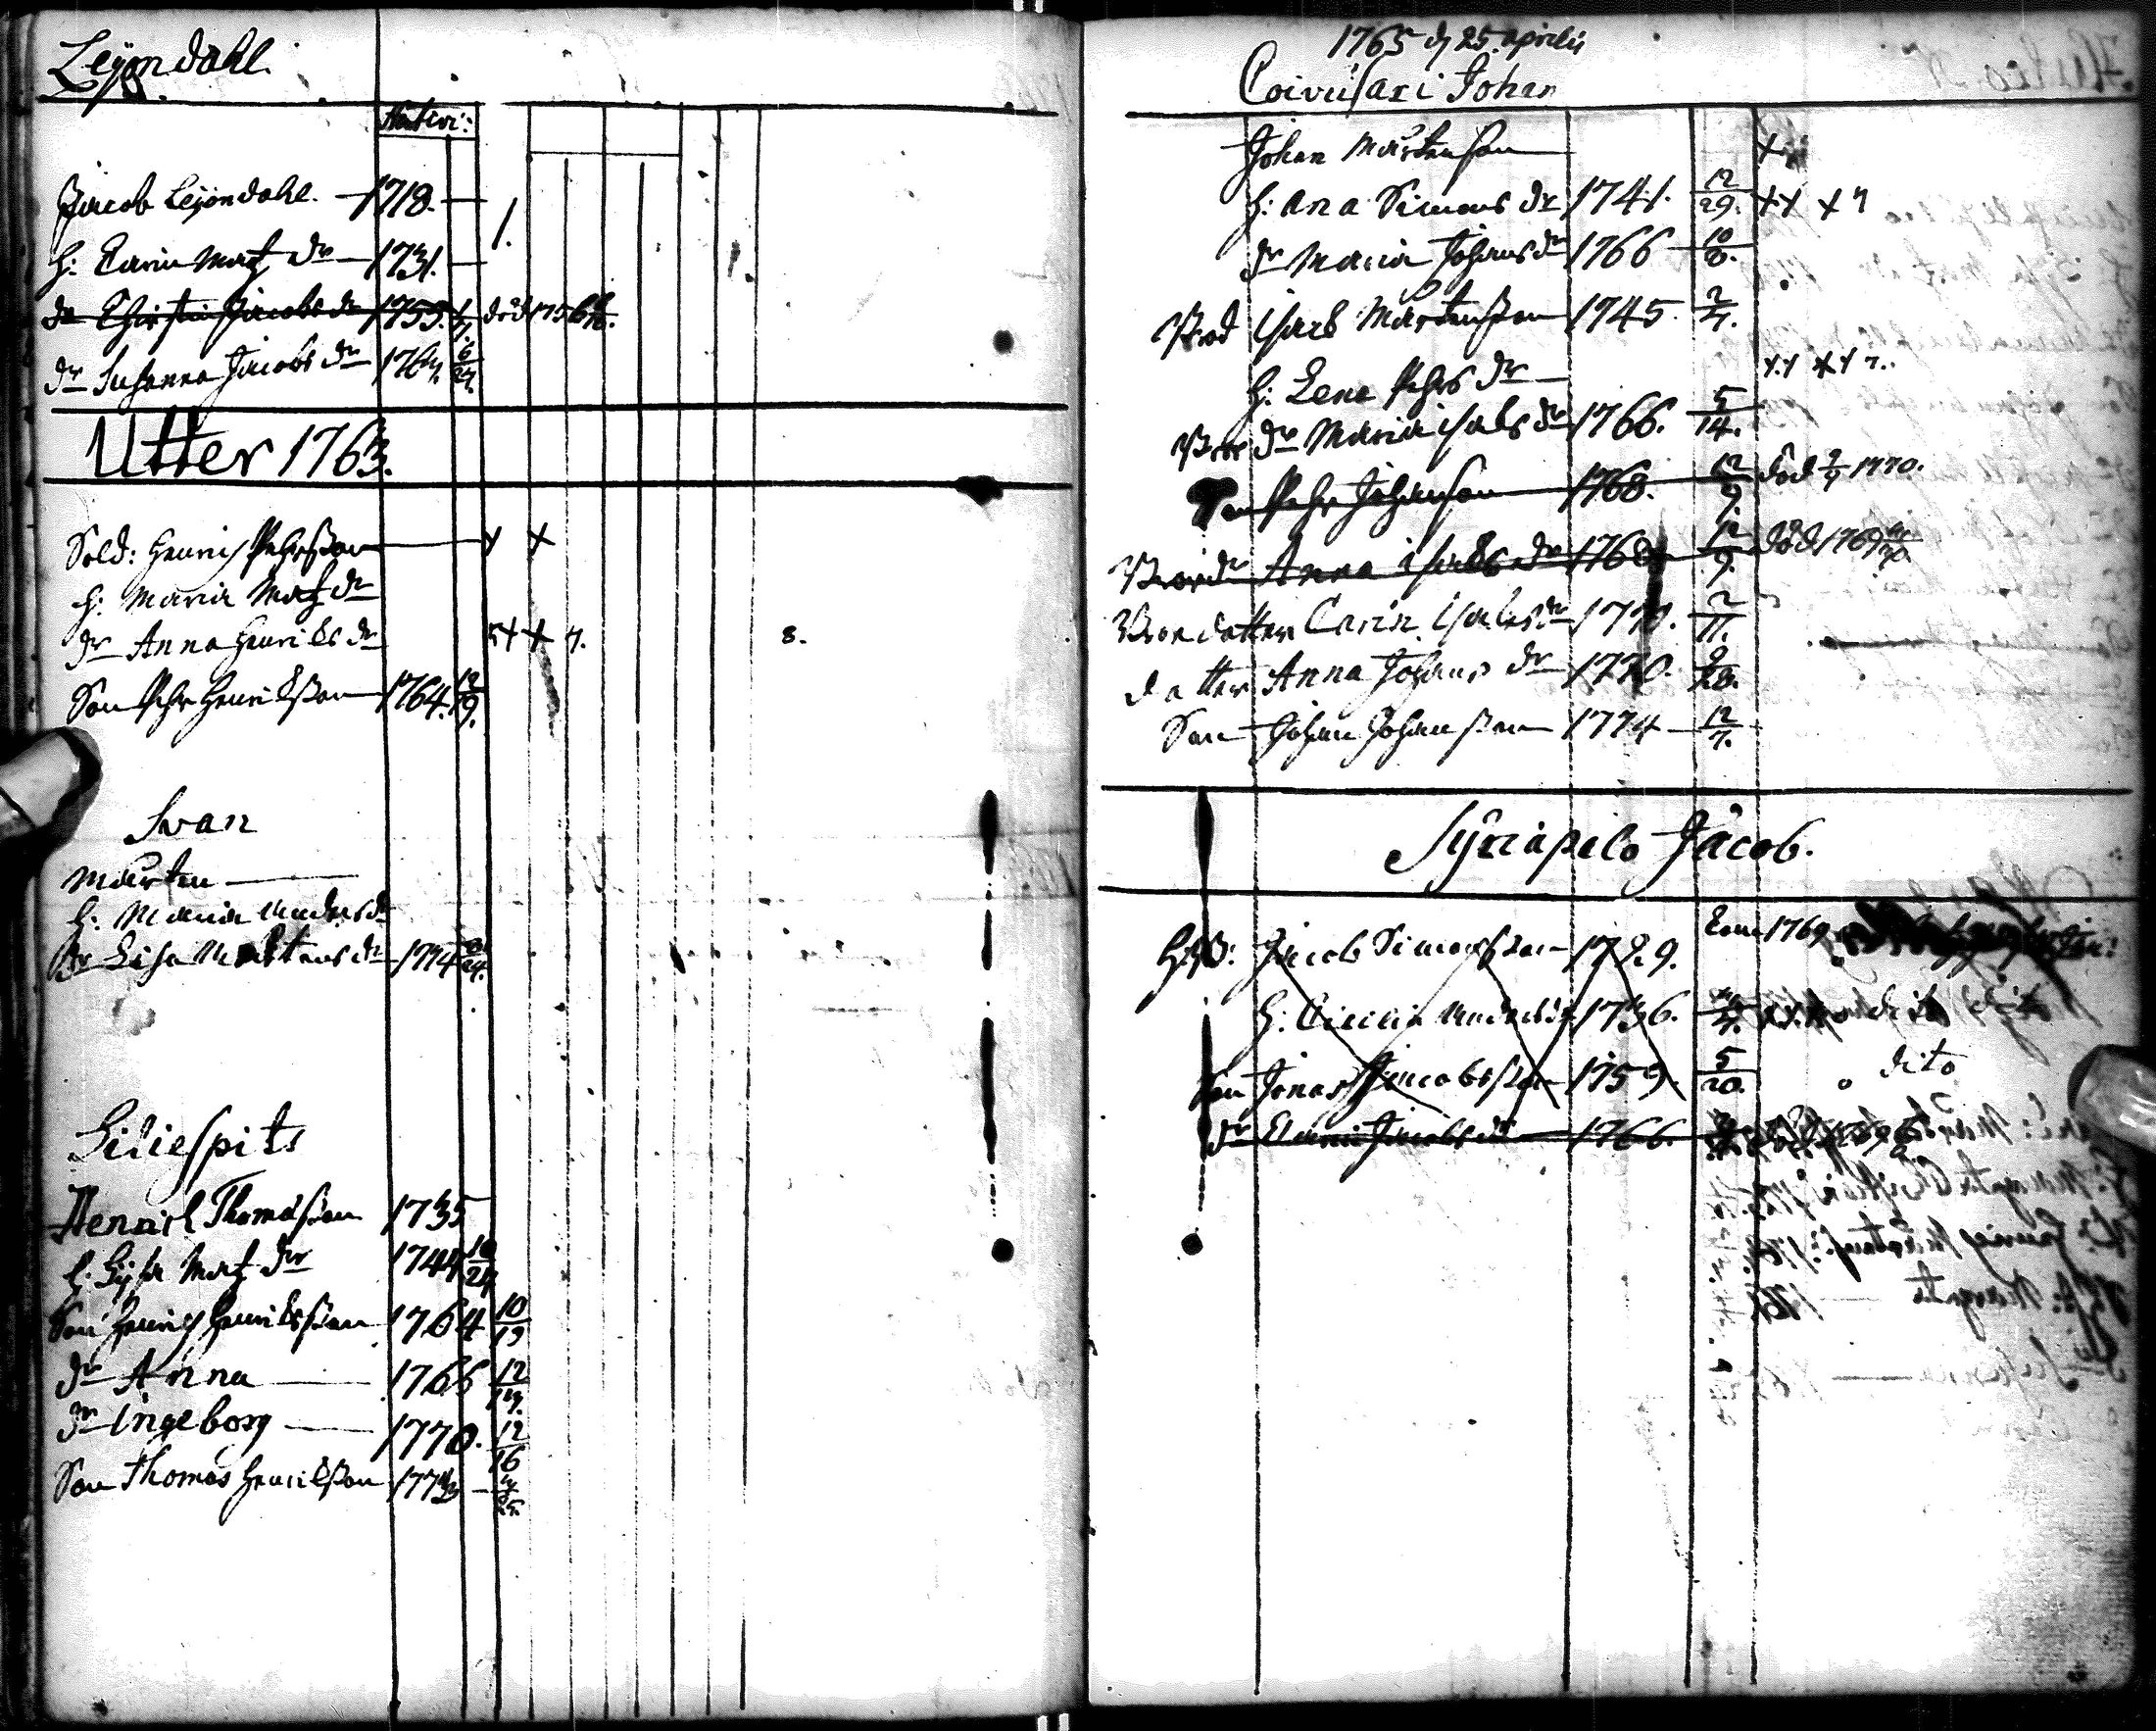 Leijondahl.
Nativi:
Jacob Leijondahl. 1718. 1.
h: Carin Matz dr 1731.
dr Christin Jacobs dr 1755. död 1756
dr Susanna Jacobs dr 1764. 6/27.
Utter 1763.
Sold: Henric Pehrsson x x
h: Maria Matz dr
dr Anna Henrics dr x x 7. 8.
Son Pehr Henricsson 1764. 12/19.
Svan
Mårten
h: Maria Anders dr
dr Lisa Mårtens dr 1774
Liliespits
Henrich Thomasson 1735
h: Lisa Matz dr 1744 10/24
Son Henric Henricsson 1764 10/19
dr Anna 1766 12/19.
dr Ingeborg 1770. 12/16
Son Thomas Henricsson 1773
1765 d 25 aprilis
Coivusari Johan
Johan Mårtensson x
h: Ana Simons dr 1741. 12/29. xx x 7
dr Maria Johans dr 1766 10/8.
Brod Isack Mårtensson 1745. 2/7.
h: Lena Pehrs dr xx xx 7.
Bror dr Maria Isaks dr 1766. 5/14.
Son Pehr Johansson 1768. 12/9 död 1770.
Bror dr Anna Isaks dr 1768 12/9. död 1769
Bror dotter Carin Isaks dr 1770. 2/11.
dotter Anna Johans dr 1770. 9/28.
Son Johan Johansson 1774 12/7.
Syriäpelo Jacob.
Jacob Simonsson 1729. 1769
h: Anders dr 1736. dito
Son Jonas Jacobsson 1759. 5/20. dito
dr Jacobs dr 1766. död